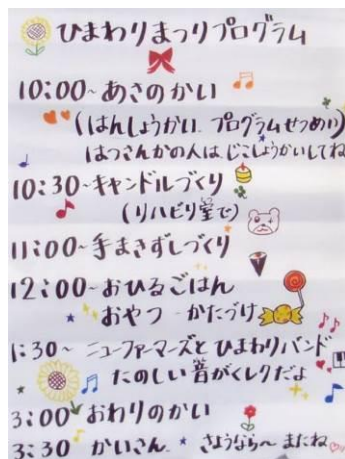 ひまわりまつりプログラム
10:00~あさのかい
(はんしょうかい. プログラムせつめい)
はつさんかの人は、じこしょうかいしてね
10:30~キャンドルづくり
(リハビリ室で)
11:00~手まきずしづくり
12:00~おひるごはん
おやつ かたづけ
1:30~ ニューファーマーズと ひまわりバンド
たのしい音がくしりだよ
3:00 おわりのかい
3:30 かいさん. さようなら~ またね